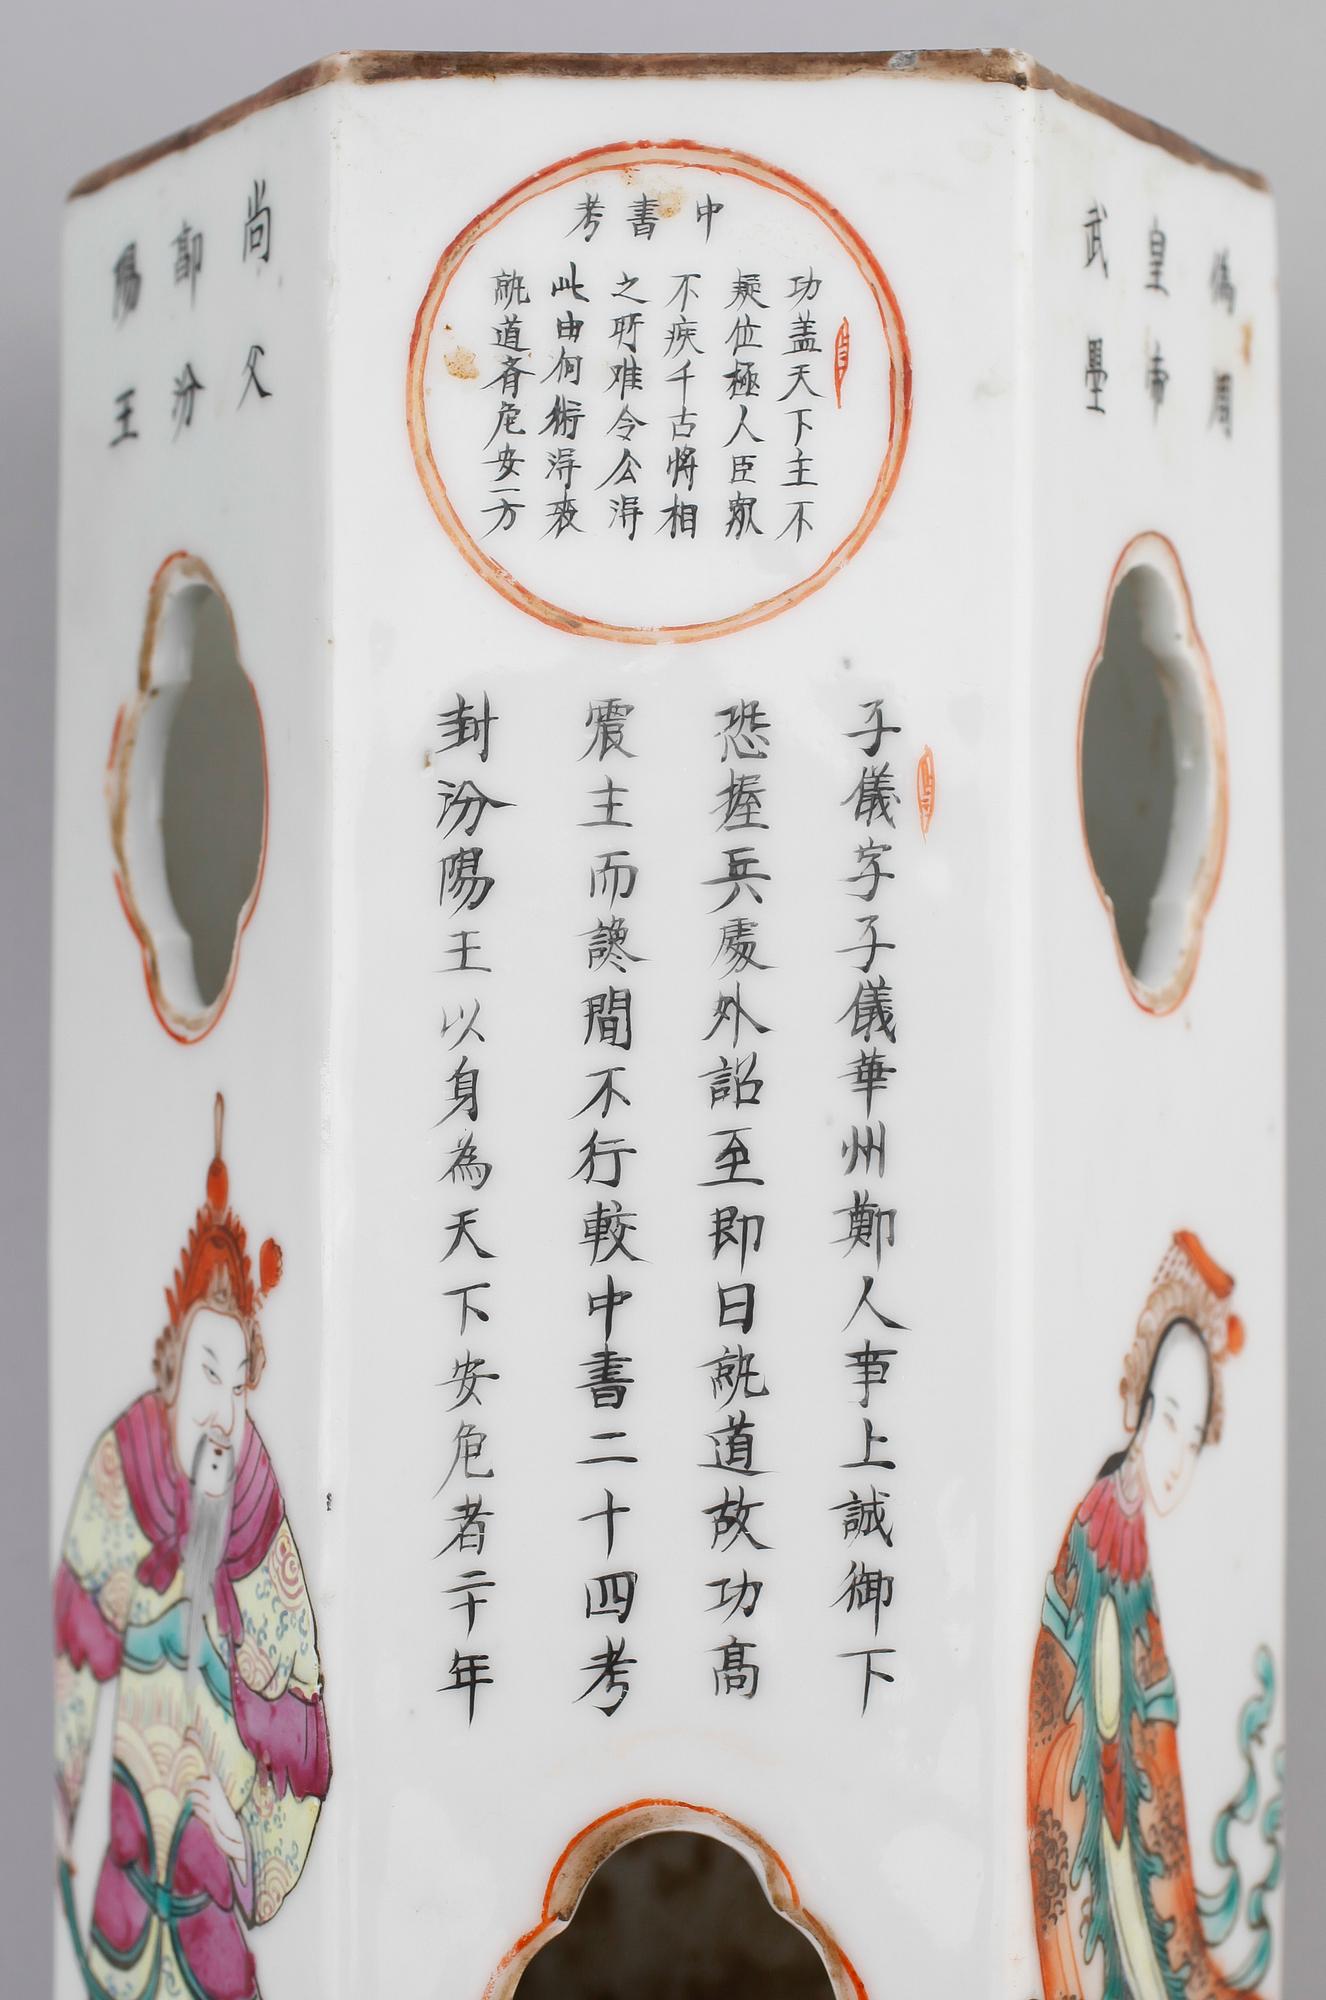 中書考
功蓋天下主不
疑位極人臣眾
不疾千古將相
之所难令公淂
此由何術淂来
就道齊危安一方
子儀字子儀華州鄭人事上誠御下
恐握兵處外詔至即日就道故功高
震主而讒間不行較中書二十四考
封汾陽王以身為天下安危者二十年
偽周
皇帝
武曌
尚父
郭汾
陽王